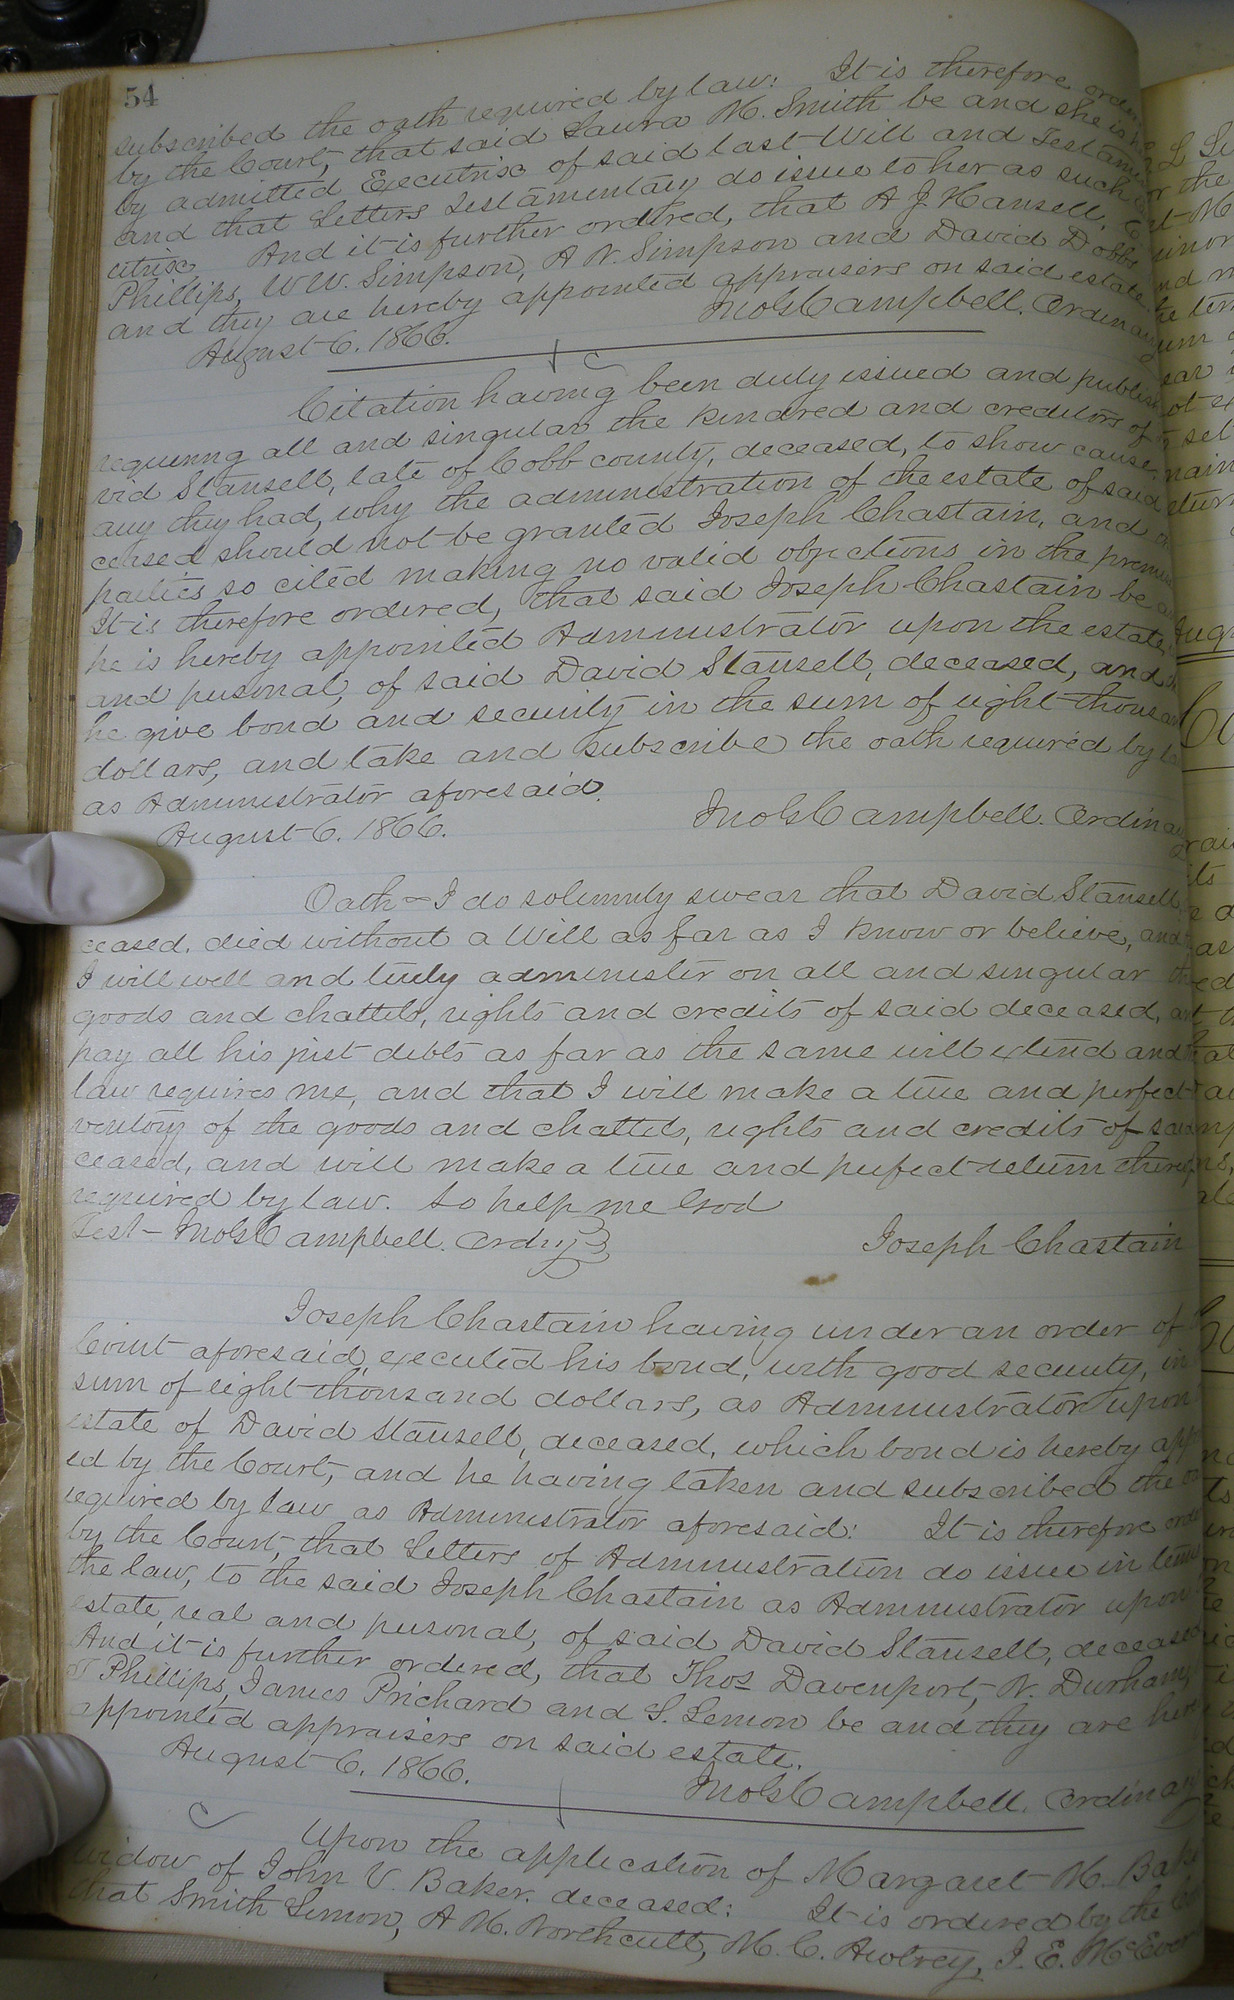 54
subscribed the oath required by law: It is therefore order
by the Court, that said Laura M. Smith be and she is here
by admitted Executrix of said last Will and Testament
and that Letters testamentary do issue to her as such Ex
ecutrix And it is further ordered, that A J. Hansell,
Phillips, W W. Simpson, A N. Simpson and David Dobbs
and they are hereby appointed appraisers on said estate
August 6. 1866. Jno G Campbell. Ordinary
Citation having been duly issued and publish
requiring all and singular the kindred and creditors of
vid Stansell, late of Cobb county, deceased, to show cause
any they had, why the administration of the estate of said
ceased should not be granted Joseph Chastain, and
parties so cited making no valid objections in the premises
It is therefore ordered, that said Joseph Chastain be and
he is hereby appointed Administrator upon the estate,
and personal, of said David Stansell, deceased, and
he give bond and security in the sum of eight thousand
dollars, and take and subscribe the oath required by law
as Administrator aforesaid.
August 6. 1866. Jno G Campbell. Ordinary
Oath - I do solemnly swear that David Stansell
ceased, died without a Will as far as I know or believe, and
I will well and truly administer on all and singular the
goods and chattels, rights and credits of said deceased, and
pay all his just debts as far as the same will extend and
law requires me, and that I will make a true and perfect
ventory of the goods and chattels, rights and credits of said
ceased, and will make a true and perfect return thereof
required by law. So help me God
Test - Jno G Campbell. Ordny Joseph Chastain
Joseph Chastain having under an order of
Court aforesaid, executed his bond, with good security, in
sum of eight thousand dollars, as Administrator upon
estate of David Stansell, deceased, which bond is hereby app
ed by the Court, and he having taken and subscribed the oa
required by law as Administrator aforesaid: It is therefore order
by the Court, that Letters of Administration do issue in terms
the law, to the said Joseph Chastain as Administrator upon
estate, real and personal, of said David Stansell, deceased
And it is further ordered, that Thos Davenport, N. Durham,
Phillips, James Prichard and S. Lemon be and they are here
appointed appraisers on said estate.
August 6. 1866. Jno G Campbell. Ordinary
Upon the application of Margaret M. Baker
widow of John V. Baker deceased: It is ordered by the Court
that Smith Lemon, A M. Northcutt, M. C. Awtrey, J. E. McEver